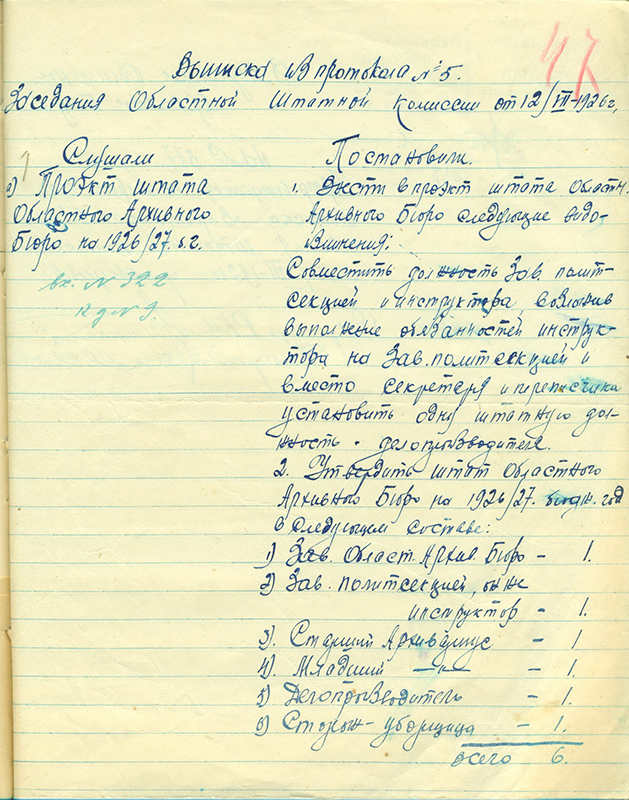 47
Выписка из протокола № 5.
Заседания Областной Штатной комиссии от 12/VII-1926 г,
Слушали
2) Проэкт штата
Областного Архивного
Бюро на 1926/27. б.г.
вх. № 322
к д № 9.
Постановили.
1. Внести в проэкт штата Областн.
Архивного Бюро следующие видо-
изменения:
Совместить должность Зав. полит-
секцией и инструктора, возложив
выполнение обязанностей инструк-
тора на Зав. политсекцией и
вместо секретаря и переписчика
установить одну штатную дол-
жность - делопроизводителя.
2. Утвердить штат Областного
Архивного Бюро на 1926/27. бюдж. год
в следующем составе:
1) Зав. Област. Архив. Бюро - 1.
2) Зав. политсекцией, он же
инструктор - 1.
3) Старший Архивариус - 1
4) Младший —"— - 1.
5) Делопроизводитель - 1.
6) Сторож-уборщица - 1.
всего 6.